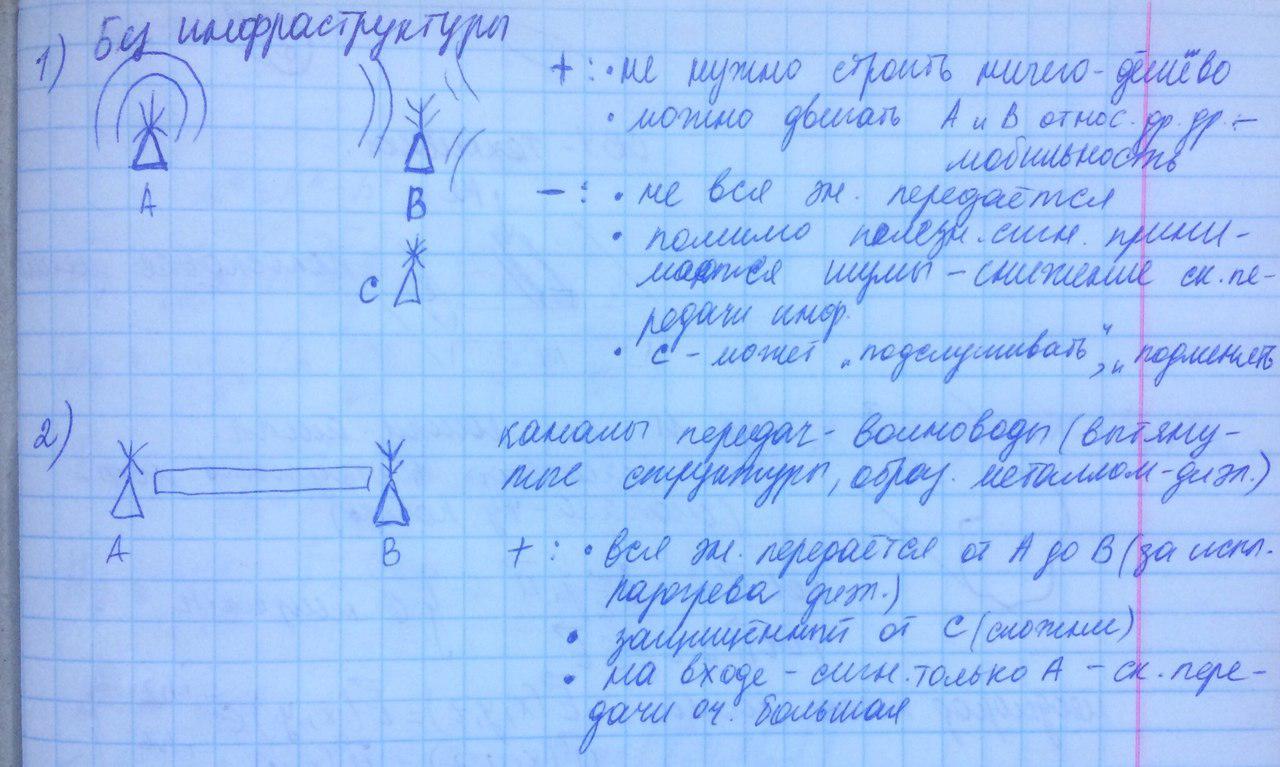 1) Без инфраструктуры
+ : • не нужно строить ничего - дёшево
• можно двигать А и В относ. др. др. -
мобильность
А
В
- : • не вся эн. передаётся
• помимо полезн. сигн. прини-
маются шумы - снижение ск. пе-
редачи инф.
С
• С - может „подслушивать“, „подменять
2)
каналы передач - волноводы (вытяну-
тые структуры, образ. металлом - диэл.)
А
В
+ : • вся эн. передаётся от А до В (за искл.
нагрева диэл.)
• защищённый от С (сложни)
• на входе - сигн. только А - ск. пере-
дачи оч. большая